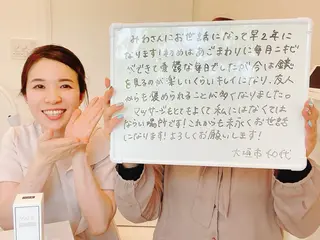 みわさんにお世話になって早2年に
なります!初めはあごまわりに毎月ニキビ
ができて憂鬱な毎日でしたが今は鏡
を見るのが楽しいくらいキレイになり、友人
からも褒められることが多くなりました。
マッサージもとてもよくて私にはなくては
ならい場所です!これからも永くお世話
になります!よろしくお願いします!
大垣市 和代